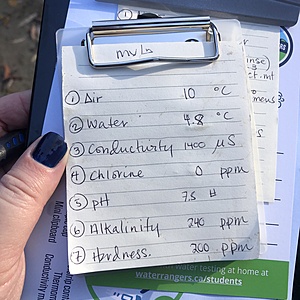 ① Air 10 °C
② Water 4.8 °C
③ Conductivity 1400 µS
④ Chlorine 0 ppm
⑤ pH 7.5 H
⑥ Alkalinity 240 ppm
⑦ Hardness. 300 ppm
water testing at home at
waterrangers.ca/students